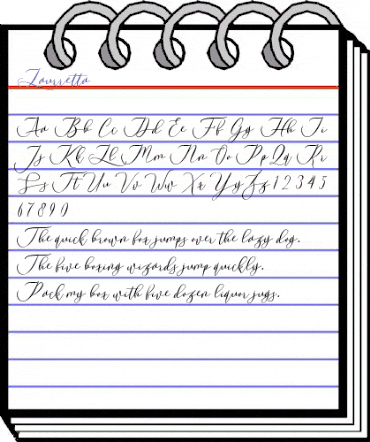 Laurretta
Aa Bb Cc Dd Ee Ff Gg Hh Ii
Jj Kk Ll Mm Nn Oo Pp Qq Rr
Ss Tt Uu Vv Ww Xx Yy Zz 1 2 3 4 5
6 7 8 9 0
The quick brown fox jumps over the lazy dog.
The five boxing wizards jump quickly.
Pack my box with five dozen liquor jugs.